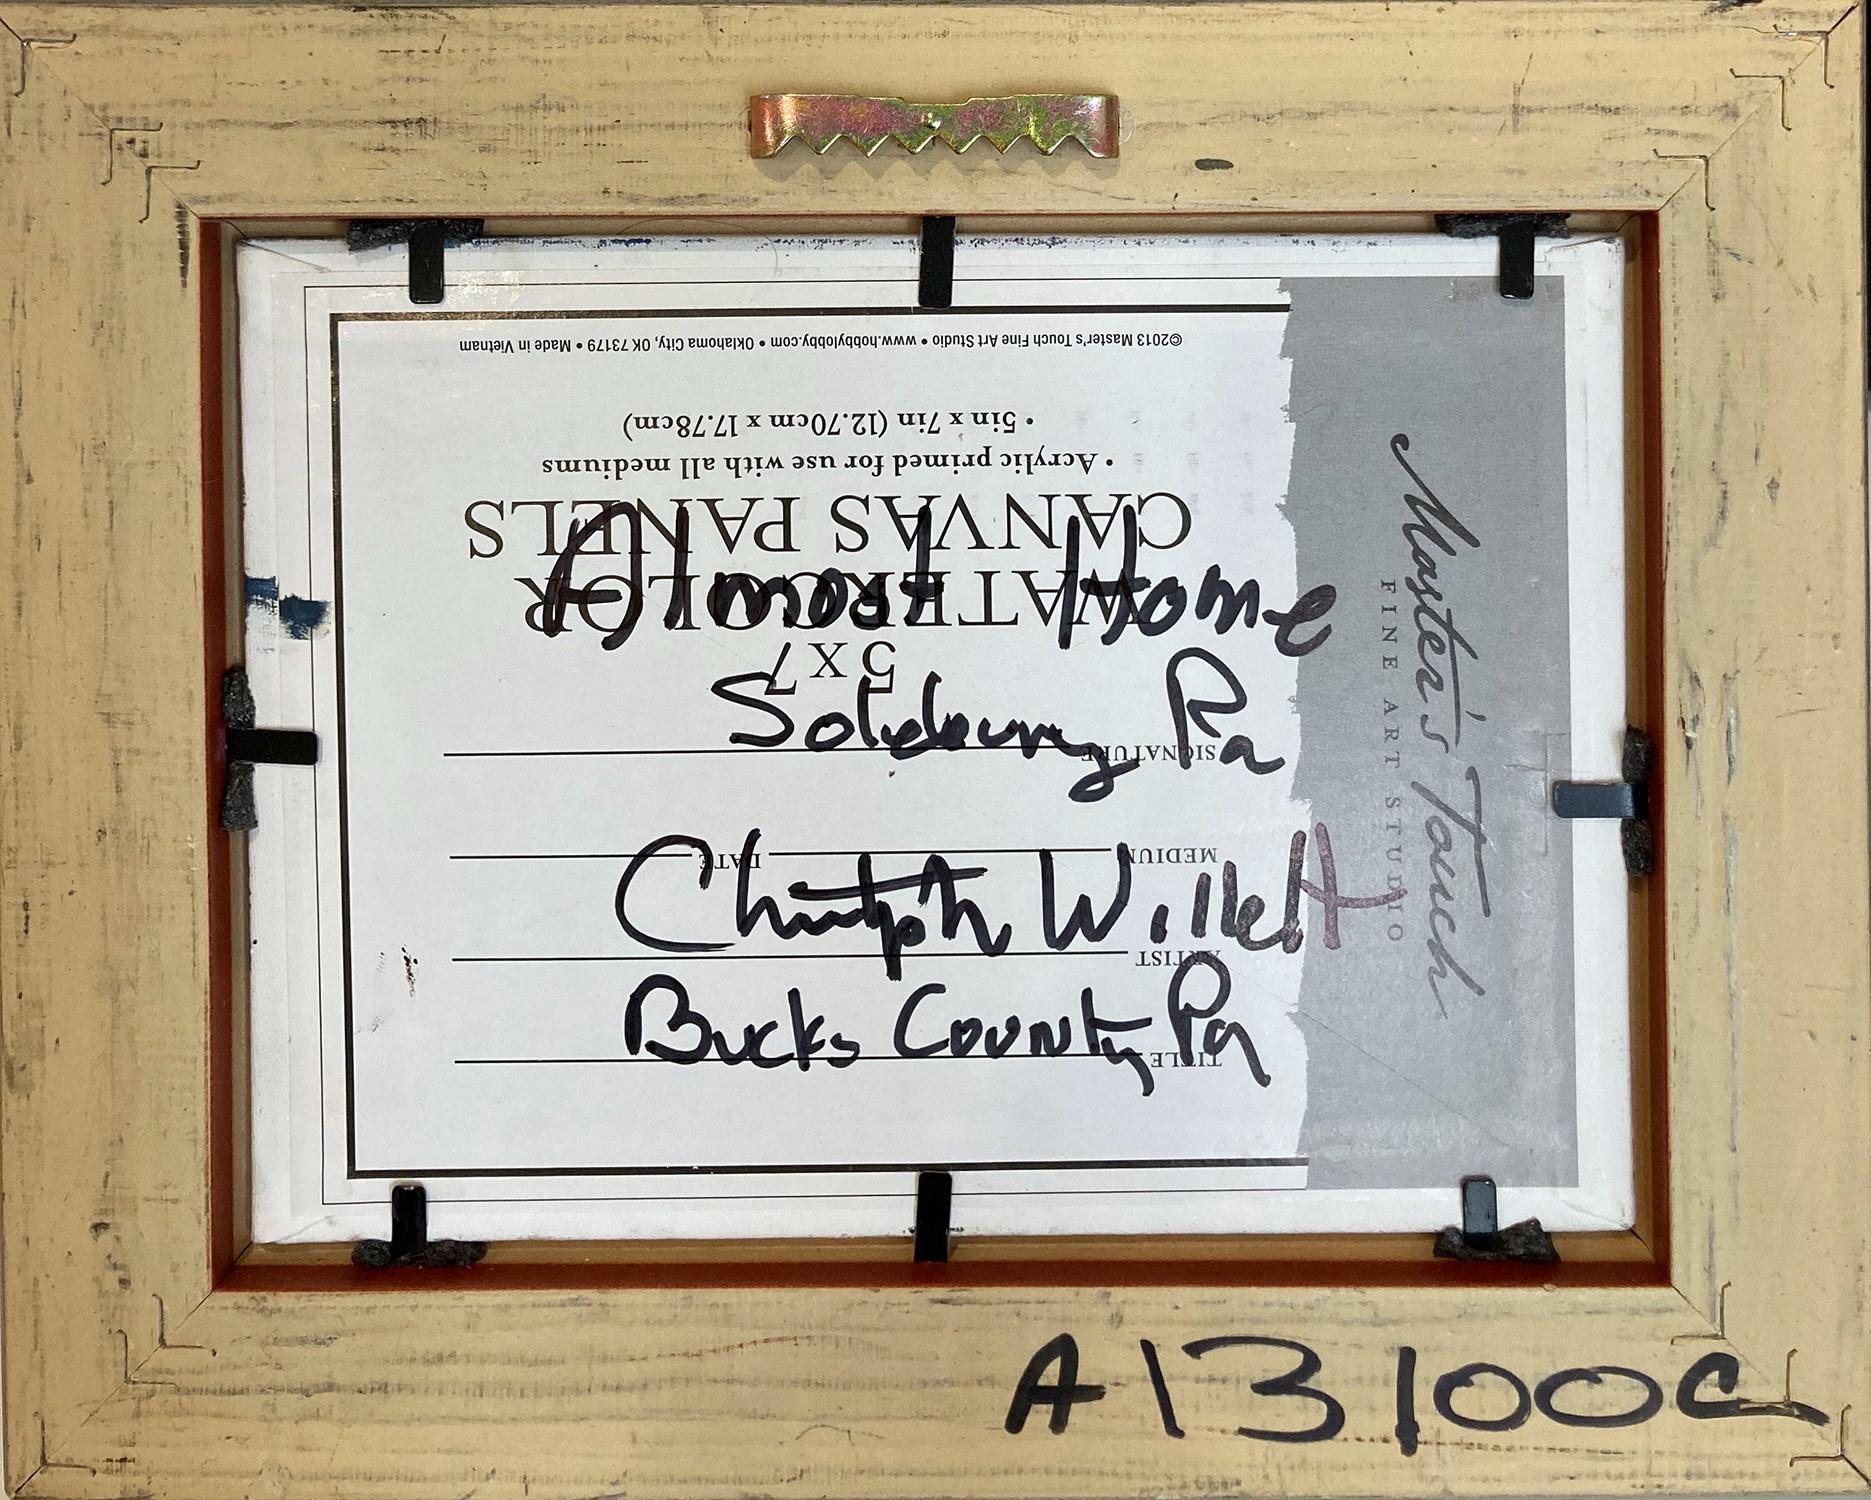 ©2013 Master's Touch Fine Art Studio • www.hobbylobby.com • Oklahoma City, OK 73179 • Made in Vietnam
• 5in x 7in (12.70cm x 17.78cm)
• Acrylic primed for use with all mediums
CANVAS PANELS
WATERCOLOR
5 x 7
Almost Home
Pa
SIGNATURE
MEDIUM DATE
Willett
ARTIST
Bucks County Pa
TITLE
Master's Touch
FINE ART STUDIO
A13100C